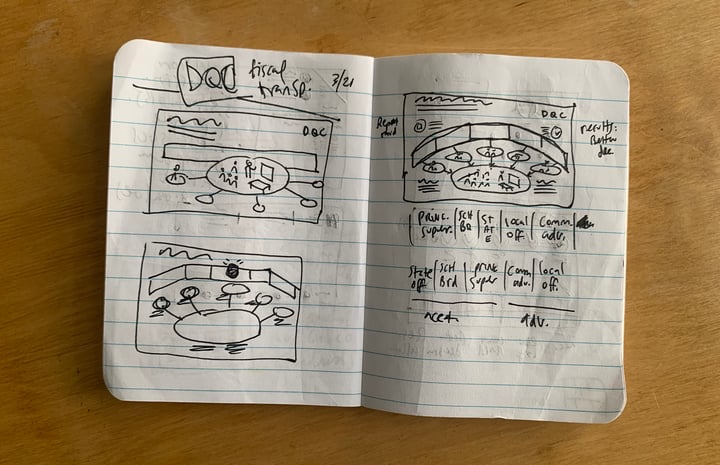 DQC fiscal
transp. 3/21
DQC
DQC
results:
Better
princ. super. | SCH BD | STATE | local off. | Comm. adv.
State off. | Sch Brd | princ super | Comm adv. | local off.
adv.